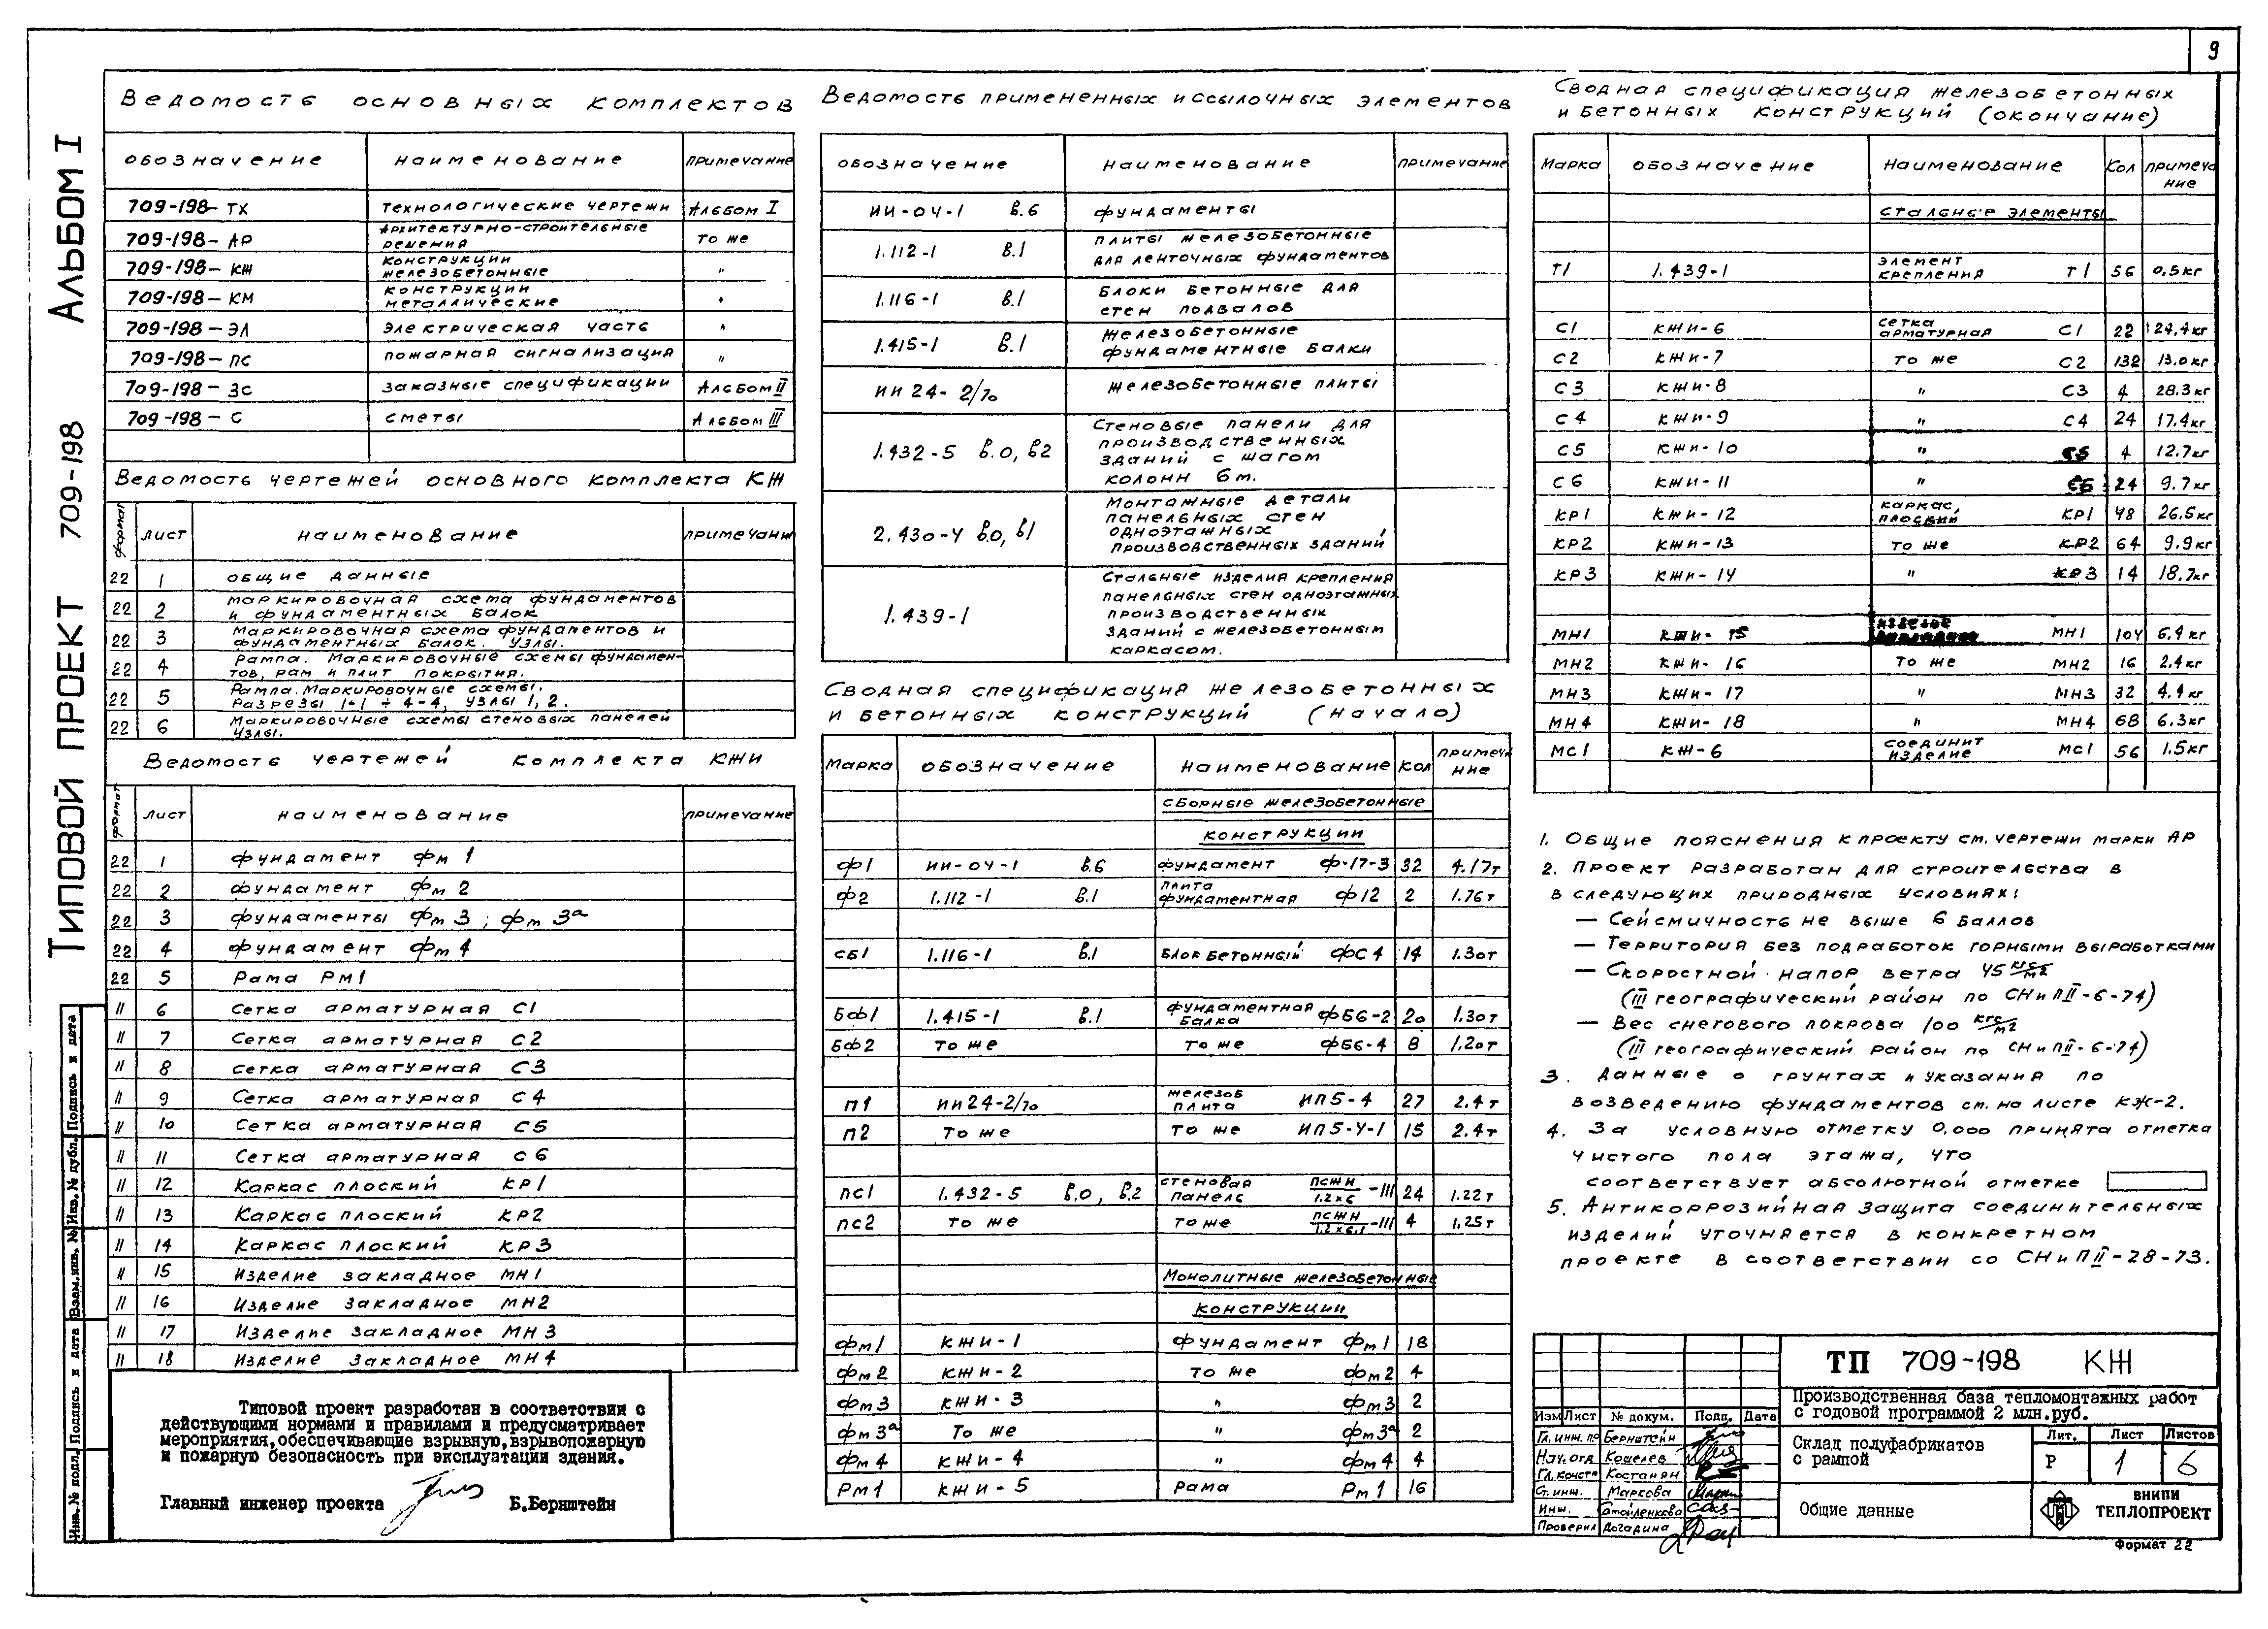 9
Альбом I
Типовой проект 709-198
Ведомость основных комплектов
обозначение наименование примечание
709-198-ТХ Технологические чертежи Альбом I
709-198-АР Архитектурно-строительные решения то же
709-198-КЖ Конструкции железобетонные "
709-198-КМ Конструкции металлические "
709-198-ЭЛ Электрическая часть "
709-198-ПС Пожарная сигнализация "
709-198-ЗС Заказные спецификации Альбом II
709-198-С Сметы Альбом III
Ведомость чертежей основного комплекта КЖ
формат лист наименование примечани
22 1 Общие данные
22 2 Маркировочная схема фундаментов
и фундаментных балок
22 3 Маркировочная схема фундаментов и
фундаментных балок. Узлы.
22 4 Рампа. Маркировочные схемы фундамен-
тов, рам и плит покрытия.
22 5 Рампа. Маркировочные схемы.
Разрезы 1-1 ÷ 4-4, узлы 1, 2.
22 6 Маркировочные схемы стеновых панелей
Узлы.
Ведомость чертежей комплекта КЖИ
формат лист наименование примечание
22 1 Фундамент Фм 1
22 2 Фундамент Фм 2
22 3 Фундаменты Фм 3; Фм 3а
22 4 Фундамент Фм 4
22 5 Рама РМ1
" 6 Сетка арматурная С1
" 7 Сетка арматурная С2
" 8 Сетка арматурная С3
" 9 Сетка арматурная С4
" 10 Сетка арматурная С5
" 11 Сетка арматурная С6
" 12 Каркас плоский КР1
" 13 Каркас плоский КР2
" 14 Каркас плоский КР3
" 15 Изделие закладное МН1
" 16 Изделие закладное МН2
" 17 Изделие закладное МН3
" 18 Изделие закладное МН4
Типовой проект разработан в соответствии с
действующими нормами и правилами и предусматривает
мероприятия, обеспечивающие взрывную, взрывопожарную
и пожарную безопасность при эксплуатации здания.
Главный инженер проекта Б.Бернштейн
Ведомость примененных и ссылочных элементов
обозначение наименование примечание
ИИ-04-1 В.6 Фундаменты
1.112-1 В.1 Плиты железобетонные
для ленточных фундаментов
1.116-1 В.1 Блоки бетонные для
стен подвалов
1.415-1 В.1 Железобетонные
фундаментные балки
ИИ 24-2/70 Железобетонные плиты
1.432-5 В.0, В2 Стеновые панели для
производственных
зданий с шагом
колонн 6м.
2.430-4 В.0, В1 Монтажные детали
панельных стен
одноэтажных
производственных зданий
1.439-1 Стальные изделия крепления
панельных стен одноэтажных
производственных
зданий с железобетонным
каркасом.
Сводная спецификация железобетонных
и бетонных конструкций (начало)
Марка обозначение наименование Кол примеча
ние
Сборные железобетонные
конструкции
Ф1 ИИ-04-1 В.6 Фундамент Ф-17-3 32 4.17т
Ф2 1.112-1 В.1 Плита фундаментная Ф12 2 1.76т
СБ1 1.116-1 В.1 Блок бетонный ФС4 14 1.30т
БФ1 1.415-1 В.1 Фундаментная балка ФБ6-2 20 1.30т
БФ2 То же То же ФБ6-4 8 1.20т
П1 ИИ24-2/70 Железоб плита ИП5-4 27 2.4т
П2 То же То же ИП5-4-1 15 2.4т
ПС1 1.432-5 В.0, В.2 Стеновая панель ПСЖН/1.2х6-III 24 1.22т
ПС2 То же То же ПСЖН/1.2х6.1-III 4 1.25т
Монолитные железобетонные
конструкции
Фм1 КЖИ-1 Фундамент Фм1 18
Фм2 КЖИ-2 То же Фм2 4
Фм3 КЖИ-3 " Фм3 2
Фм3а То же " Фм3а 2
Фм4 КЖИ-4 " Фм4 4
Рм1 КЖИ-5 Рама Рм1 16
Сводная спецификация железобетонных
и бетонных конструкций (окончание)
Марка обозначение наименование Кол примеча
ние
Стальные элементы
Т1 1.439-1 Элемент крепления Т1 56 0,5кг
С1 КЖИ-6 Сетка арматурная С1 22 124.4кг
С2 КЖИ-7 То же С2 132 13.0кг
С3 КЖИ-8 " С3 4 28.3кг
С4 КЖИ-9 " С4 24 17.4кг
С5 КЖИ-10 " С5 4 12.7кг
С6 КЖИ-11 " С6 24 9.7кг
КР1 КЖИ-12 Каркас плоский КР1 48 26.5кг
КР2 КЖИ-13 То же КР2 64 9.9кг
КР3 КЖИ-14 " КР3 14 18.7кг
МН1 КЖИ-15 Изделие МН1 104 6.4кг
МН2 КЖИ-16 То же МН2 16 2.4кг
МН3 КЖИ-17 " МН3 32 4.4кг
МН4 КЖИ-18 " МН4 68 6.3кг
МС1 КЖ-6 Соединит изделие МС1 56 1.5кг
1. Общие пояснения к проекту см. чертежи марки АР
2. Проект разработан для строительства в
в следующих природных условиях:
— Сейсмичность не выше 6 баллов
— Территория без подработок горными выработками
— Скоростной напор ветра 45 кгс/м2
(III географический район по СНиП II-6-74)
— Вес снегового покрова 100 кгс/м2
(III географический район по СНиП II-6-74)
3. Данные о грунтах и указания по
возведению фундаментов см. на листе КЖ-2.
4. За условную отметку 0,000 принята отметка
чистого пола этажа, что
соответствует абсолютной отметке
5. Антикоррозийная защита соединительных
изделий уточняется в конкретном
проекте в соответствии со СНиП II-28-73.
ТП 709-198 КЖ
Производственная база тепломонтажных работ
с годовой программой 2 млн.руб.
Изм Лист № докум. Подп. Дата
Гл. инж. пр Бернштейн
Нач. отд Кошелев
Гл. констр Костанян
Ст. инж. Маркова
Инж.
Проверил Догадина
Склад полуфабрикатов
с рампой
Лит. Лист Листов
Р 1 6
Общие данные
ВНИПИ
ТЕПЛОПРОЕКТ
Формат 22
Инв. № подл. Подпись и дата Взам. инв. № Инв. № дубл. Подпись и дата